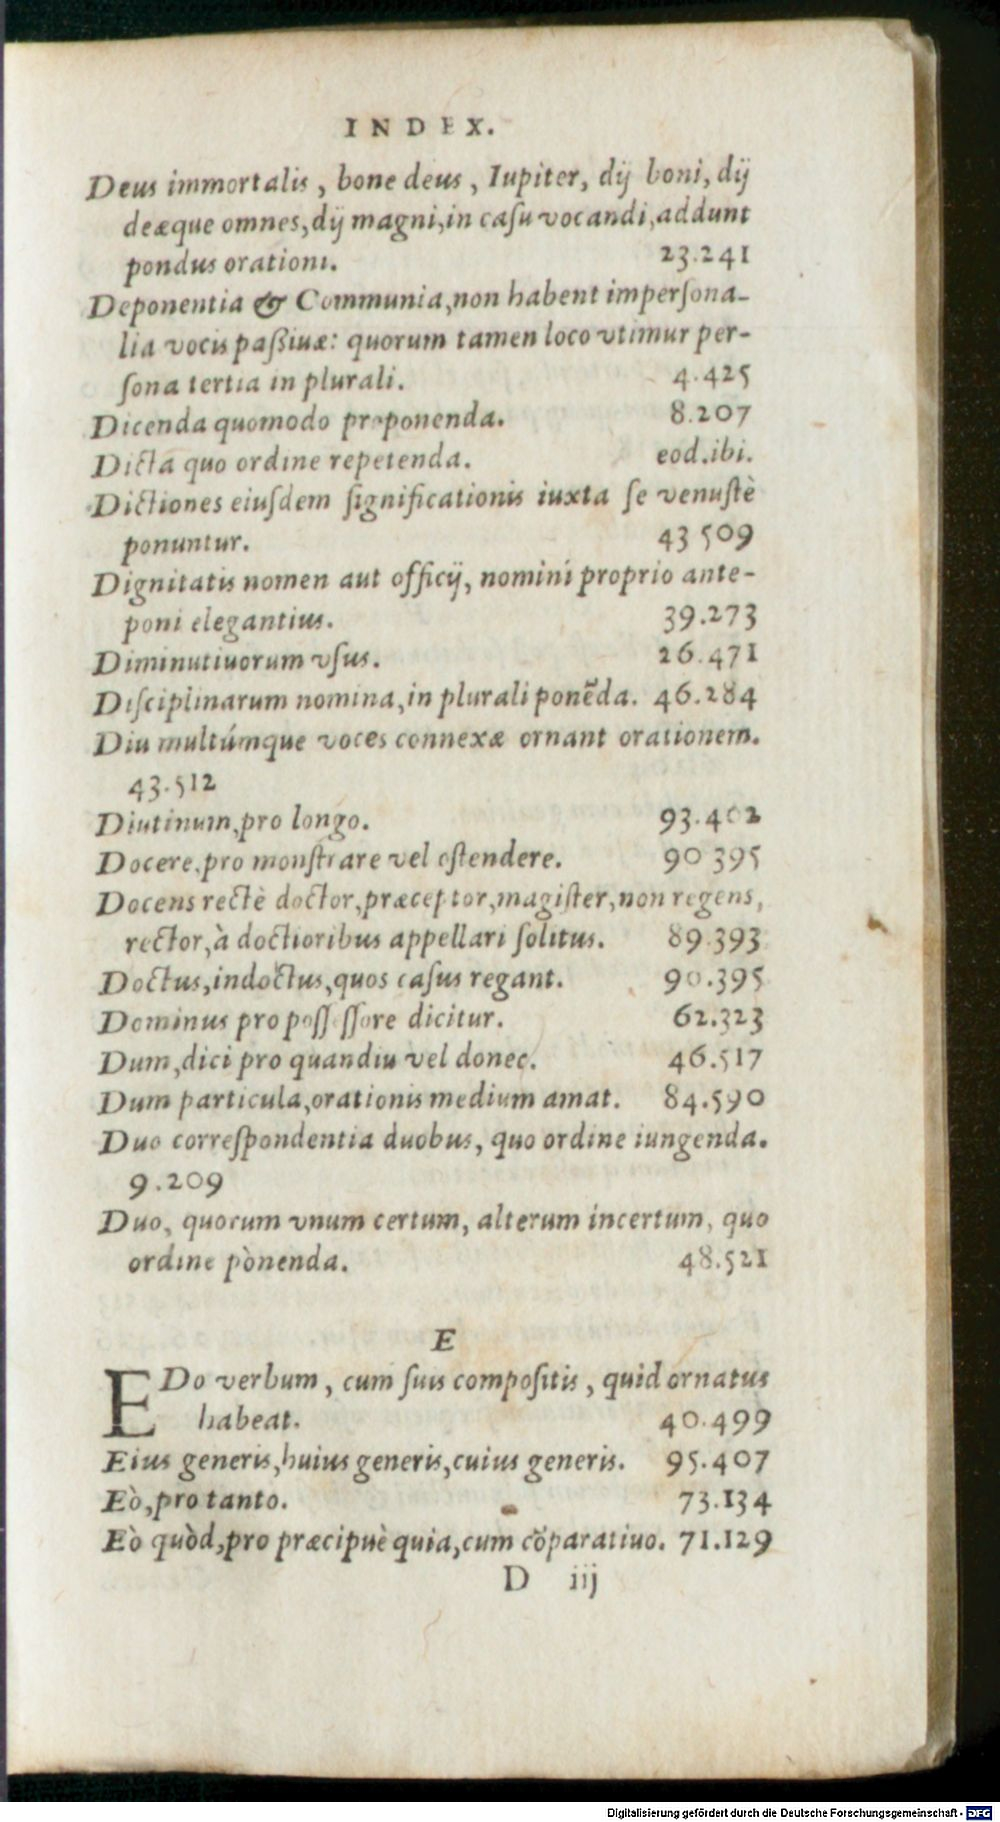 INDEX.
Deus immortalis, bone deus, Iupiter, dij boni, dij
deæque omnes, dij magni, in caſu vocandi, addunt
pondus orationi. 23.241
Deponentia & Communia, non habent imperſona-
lia vocis paſſiuæ: quorum tamen loco vtimur per-
ſona tertia in plurali. 4.425
Dicenda quomodo proponenda. 8.207
Dicta quo ordine repetenda. eod.ibi.
Dictiones eiuſdem ſignificationis iuxta ſe venuſtè
ponuntur. 43 509
Dignitatis nomen aut officij, nomini proprio ante-
poni elegantius. 39.273
Diminutiuorum vſus. 26.471
Diſciplinarum nomina, in plurali ponēda. 46.284
Diu multúmque voces connexæ ornant orationem.
43.512
Diutinum, pro longo. 93.402
Docere, pro monſtrare vel oſtendere. 90 395
Docens rectè doctor, præceptor, magiſter, non regens,
rector, à doctioribus appellari ſolitus. 89.393
Doctus, indoctus, quos caſus regant. 90.395
Dominus pro poſſeſſore dicitur. 62.323
Dum, dici pro quandiu vel donec. 46.517
Dum particula, orationis medium amat. 84.590
Duo correſpondentia duobus, quo ordine iungenda.
9.209
Duo, quorum vnum certum, alterum incertum, quo
ordine pònenda. 48.521
E
EDo verbum, cum ſuis compoſitis, quid ornatus
habeat. 40.499
Eius generis, huius generis, cuius generis. 95.407
Eò, pro tanto. 73.134
Eò quòd, pro præcipuè quia, cum cōparatiuo. 71.129
D iij
Digitalisierung gefördert durch die Deutsche Forschungsgemeinschaft - DFG